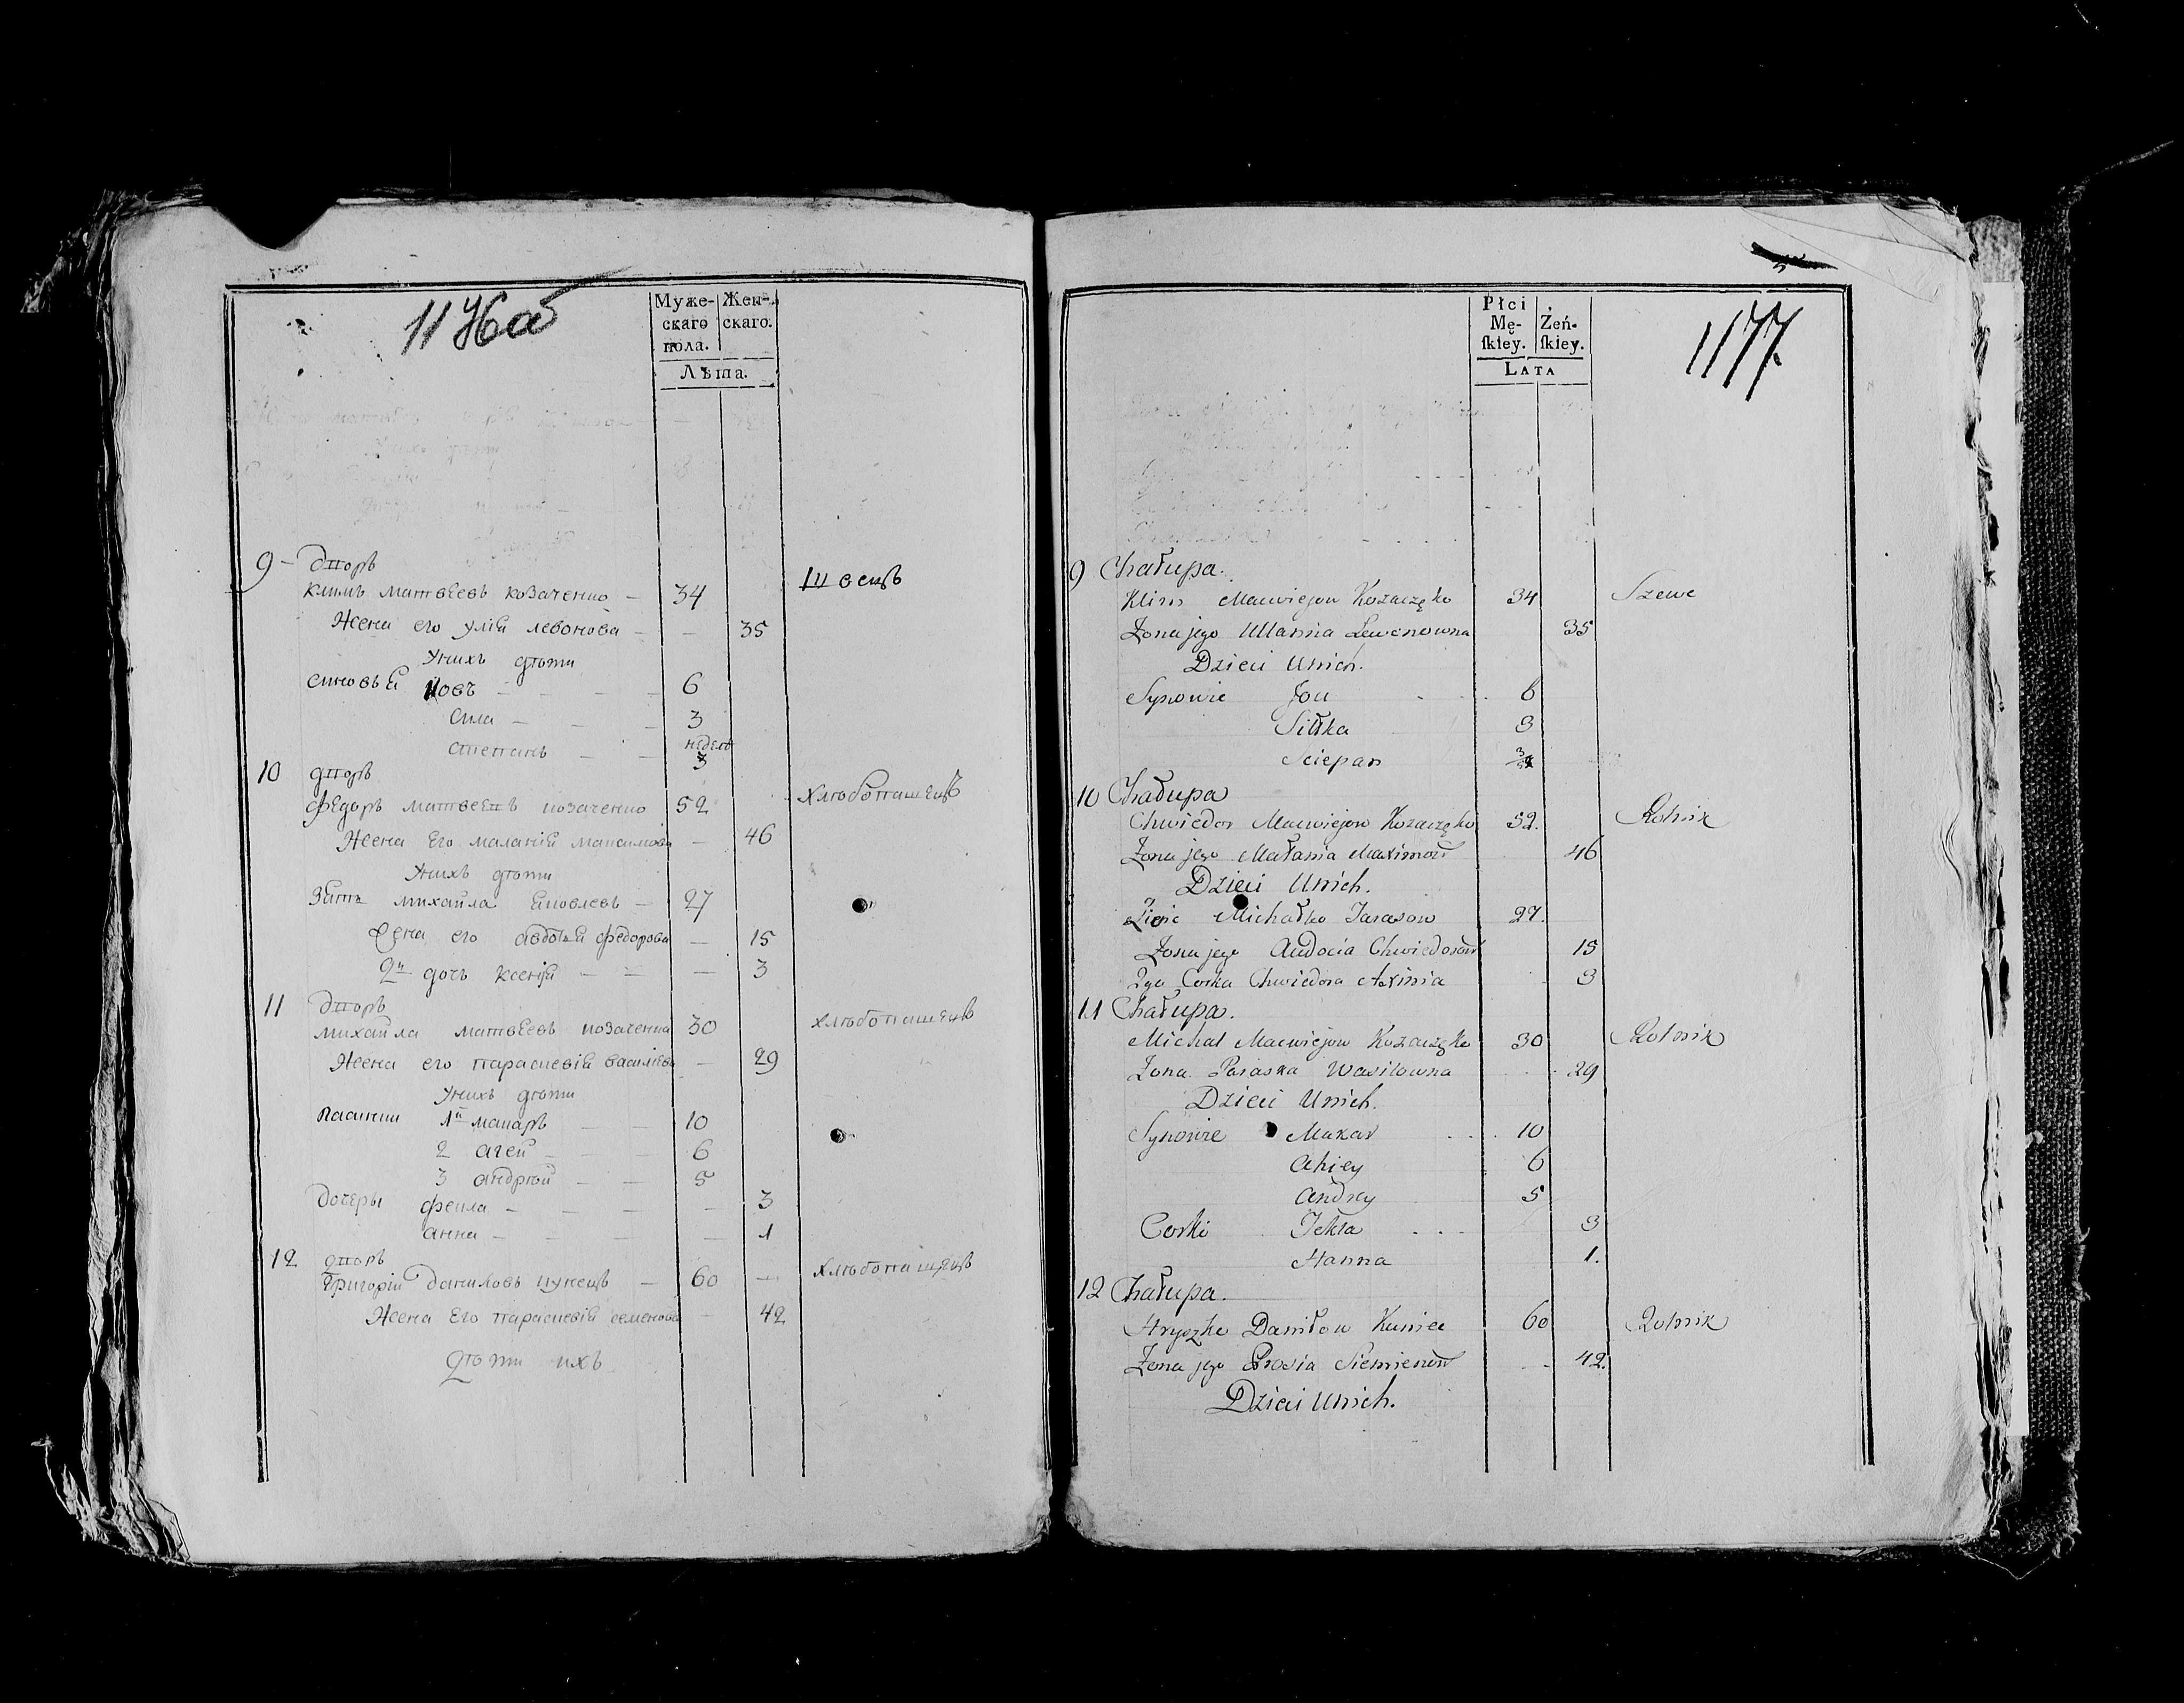 1176 об
Муже-
скаго
пола.
Жен-
скаго.
Лѣта.
9 - дворъ
климъ матвѣевъ козаченко - 34
Швецъ
Жена его улія левонова - - 35
Унихъ дѣти
сыновья Иовъ - - - - 6
сила - - - 3
степанъ - - неделѣ 3
10 дворъ
федоръ матвеевъ козаченко 52
Хлѣбопашецъ
Жена Его маланія максимова - 46
Унихъ дѣти
Зять михайла - 27
Жена его авдотья федорова - 15
2я дочь ксенія - - - 3
11 дворъ
михайла матвѣевъ козаченко 30
хлѣбопашецъ
Жена его параскевія василіева - 29
Унихъ дѣти
1й макаръ - - 10
2 агей - - - 6
3 андрѣй - - 5
Дочеры фекла - - - - 3
анна - - - - 1
12 дворъ
Григорій Даниловъ кунецъ - 60 -
хлѣбопашецъ
Жена Его параскевія семенова - 42
Дѣти ихъ
1177
Płci
Mę-
ſkiey.
Żeń-
ſkiey.
LATA
9 Chałupa.
Klim Maciviejow Kozaczęko 34
Szewc
Żona jego Ullanna Lewonowna 35
Dzieci Unich.
Synowie Jou 6
Siłka 3
Sciepan
10 Chałupa
Chwiedor Maciviejow Kozaczęko 52.
Rolnik
Żona jego Małania Maximow 46
Dzieci Unich.
Zięć Michałko 27.
Żona jego Audocia Chwiedorow 15
2ga Corka Chwiedora Axinia 3
11 Chałupa.
Michał Maciviejow Kozaczęko 30
Rolnik
Żona Paraska Wasilowna 29
Dzieci Unich.
Synowie Makar 10
Ahiey 6
Andrey 5
Corki Tekla 3
Hanna 1.
12 Chałupa.
Hryszko Daniłow Kuniec 60
Rolnik
Żona jego Prosia Siemienow 42.
Dzieci Unich.